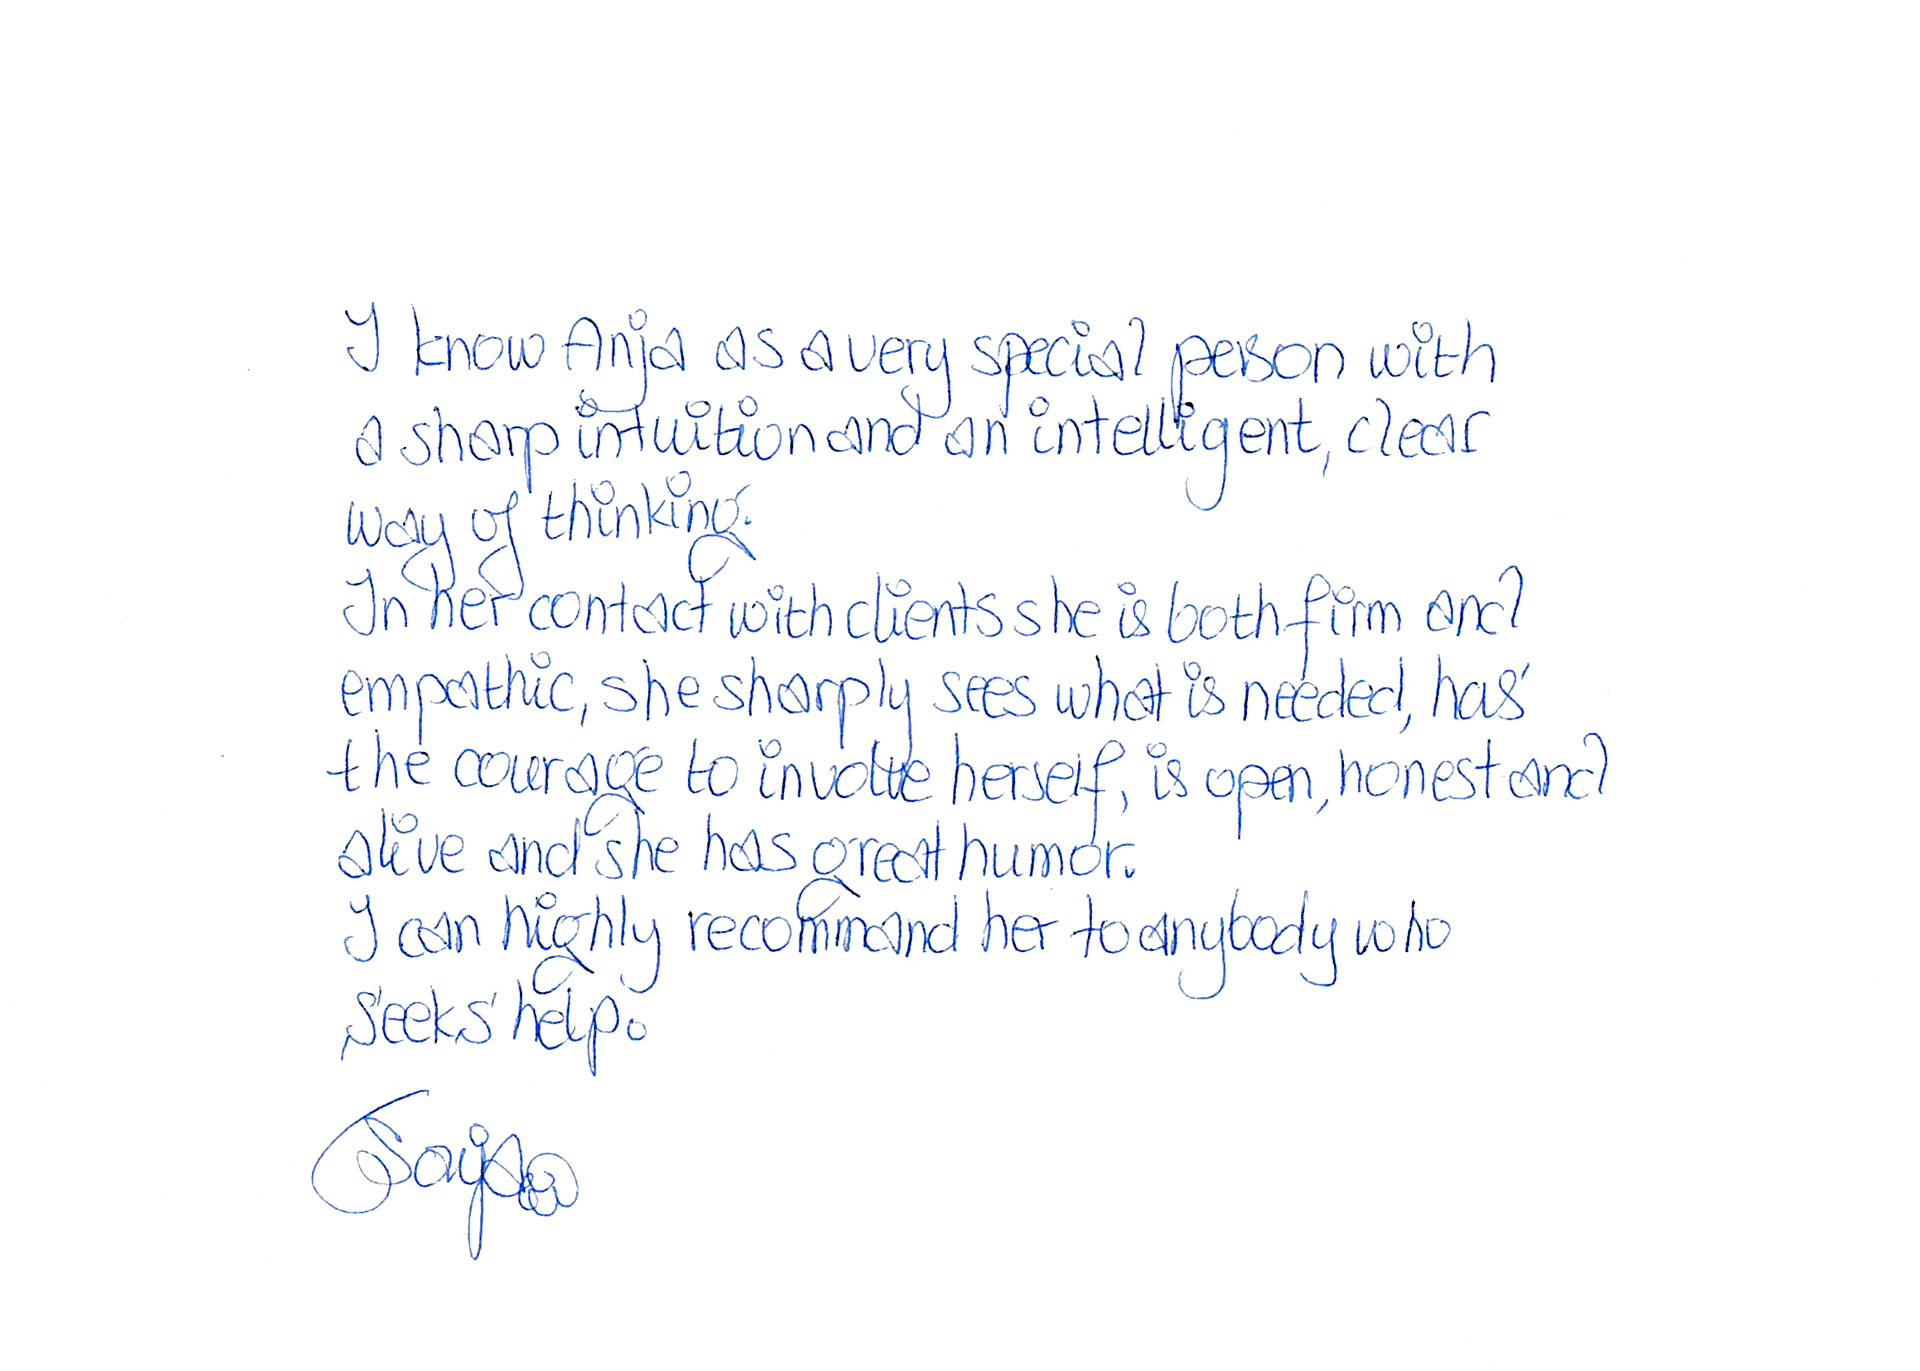 I know Anja as a very special person with
a sharp intuition and an intelligent, clear
way of thinking.
In her contact with clients she is both firm and
empathic, she sharply sees what is needed, has
the courage to involve herself, is open, honest and
alive and she has great humor.
I can highly recommand her to anybody who
seeks help.